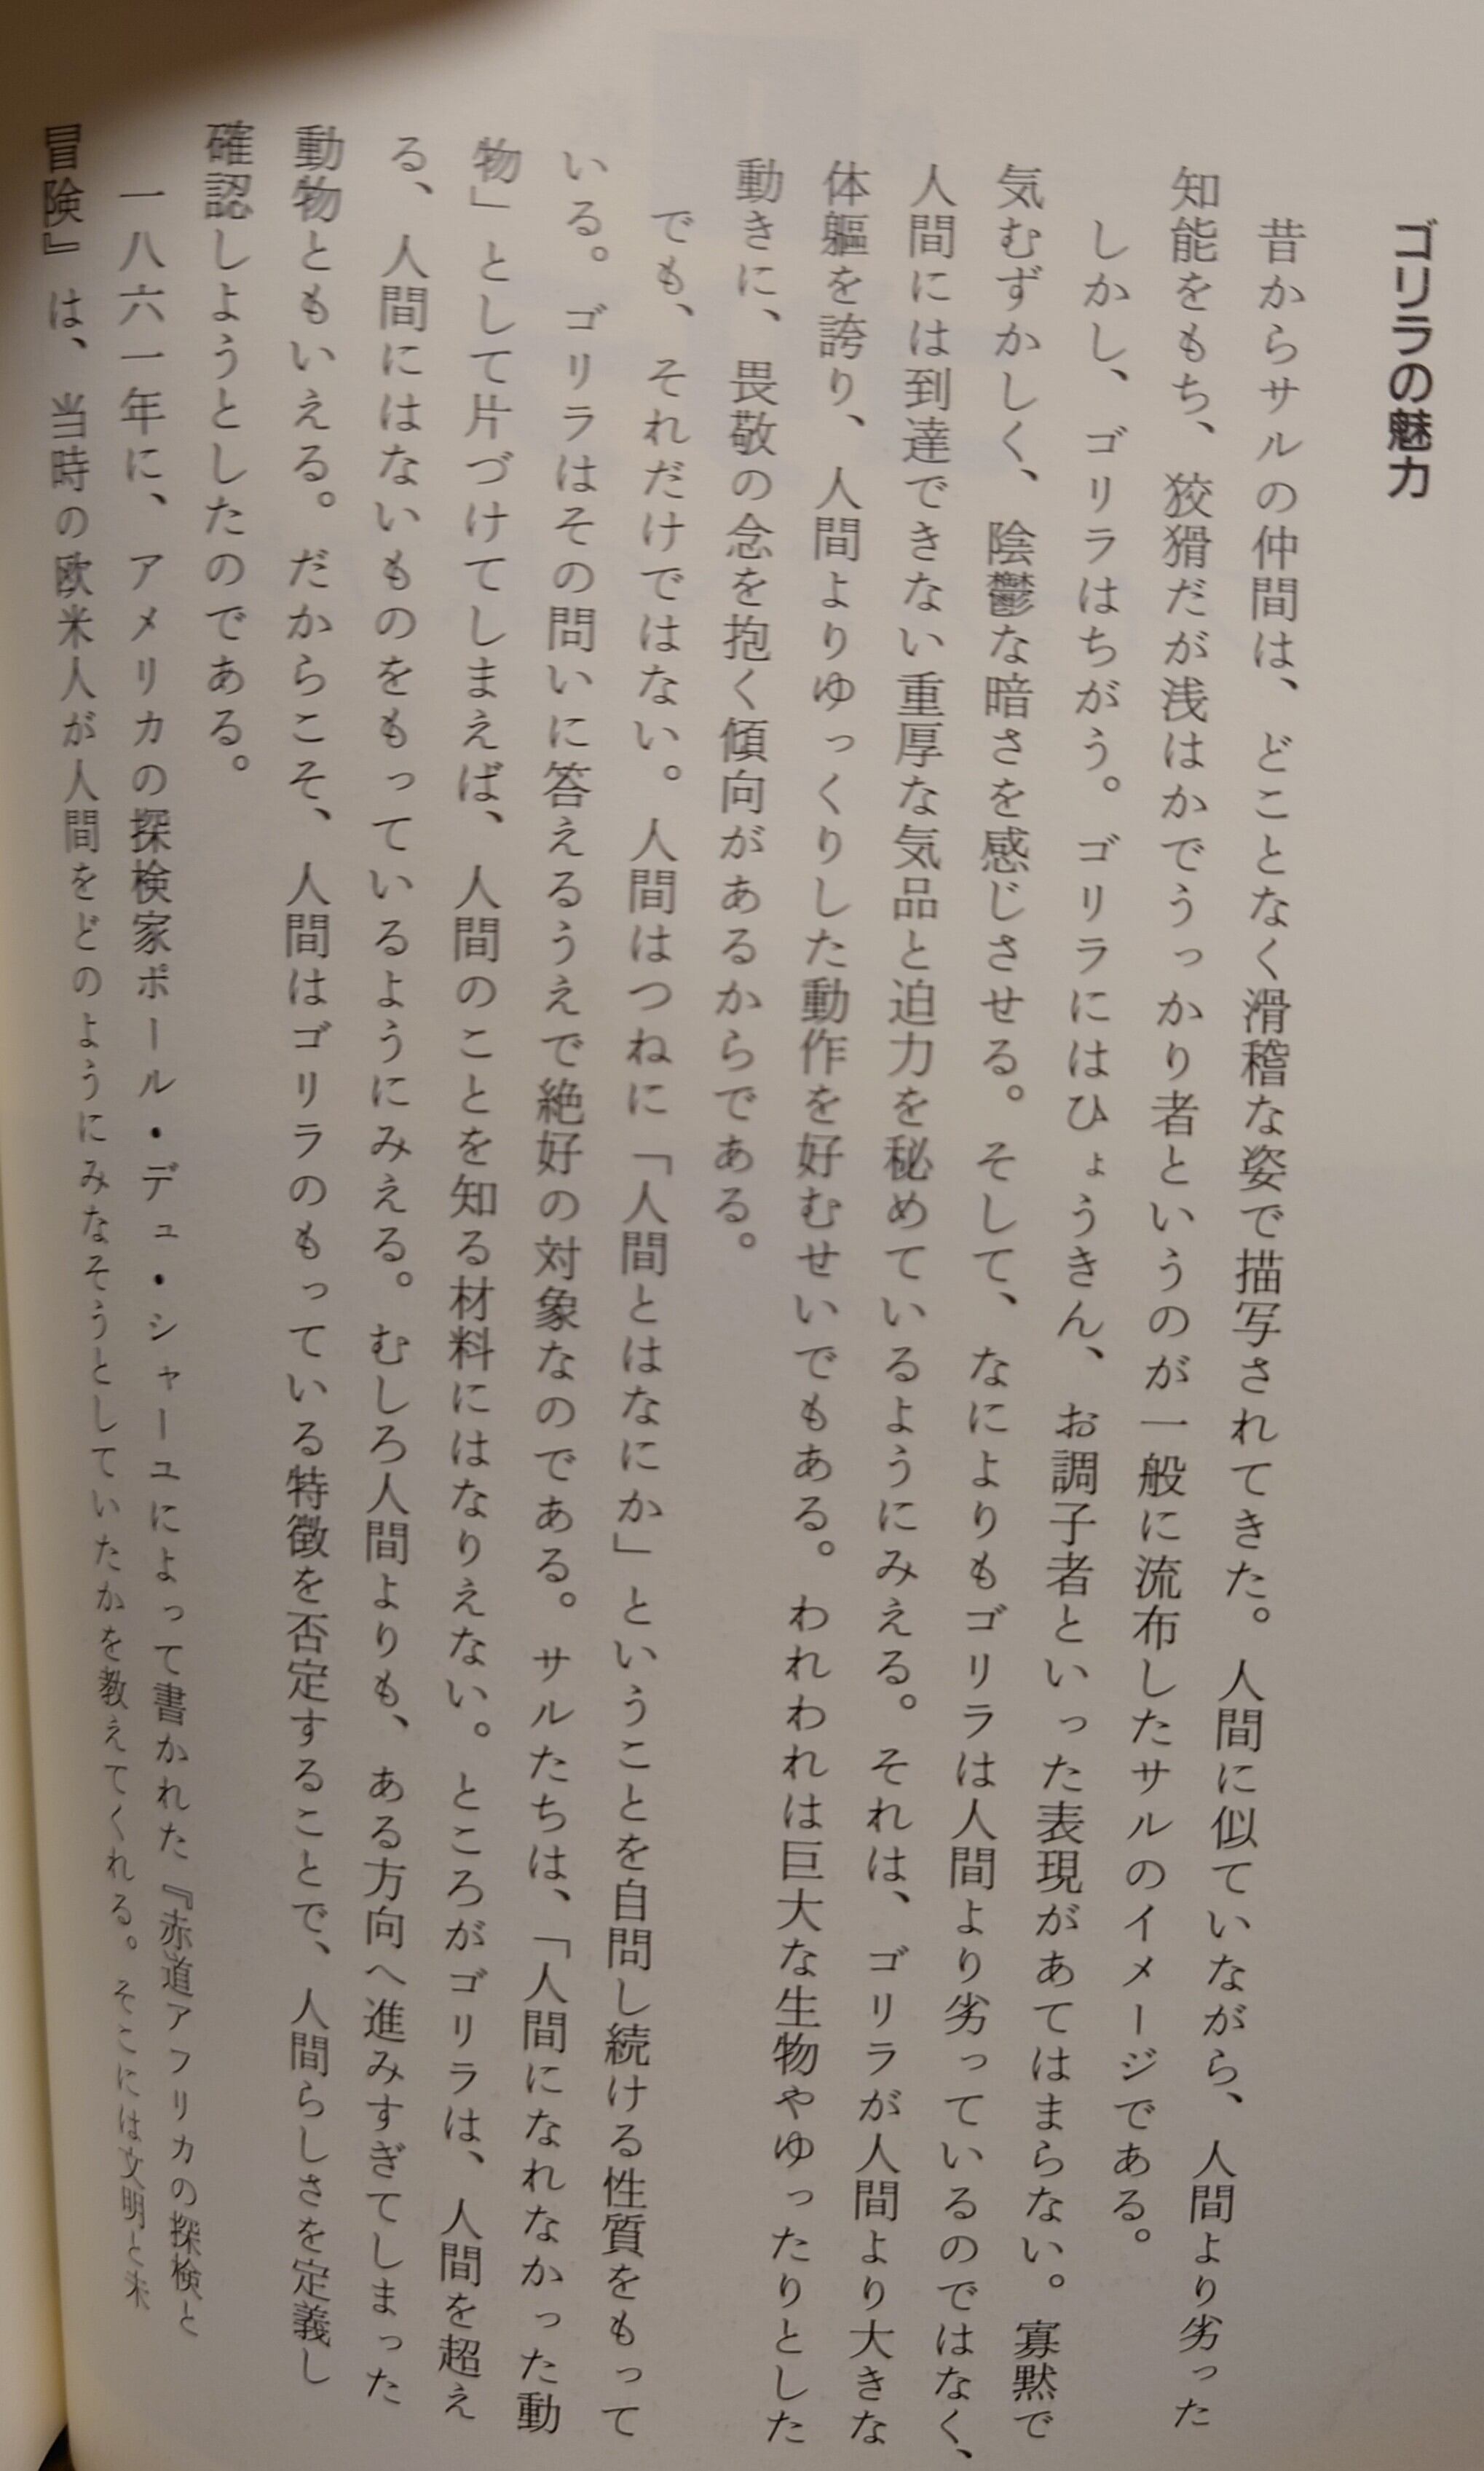 ゴリラの魅力
昔からサルの仲間は、どことなく滑稽な姿で描写されてきた。人間に似ていながら、人間より劣った
知能をもち、狡猾だが浅はかでうっかり者というのが一般に流布したサルのイメージである。
しかし、ゴリラはちがう。ゴリラにはひょうきん、お調子者といった表現があてはまらない。寡黙で
気むずかしく、陰鬱な暗さを感じさせる。そして、なによりもゴリラは人間より劣っているのではなく、
人間には到達できない重厚な気品と迫力を秘めているようにみえる。それは、ゴリラが人間より大きな
体軀を誇り、人間よりゆっくりした動作を好むせいでもある。われわれは巨大な生物やゆったりとした
動きに、畏敬の念を抱く傾向があるからである。
でも、それだけではない。人間はつねに「人間とはなにか」ということを自問し続ける性質をもって
いる。ゴリラはその問いに答えるうえで絶好の対象なのである。サルたちは、「人間になれなかった動
物」として片づけてしまえば、人間のことを知る材料にはなりえない。ところがゴリラは、人間を超え
る、人間にはないものをもっているようにみえる。むしろ人間よりも、ある方向へ進みすぎてしまった
動物ともいえる。だからこそ、人間はゴリラのもっている特徴を否定することで、人間らしさを定義し
確認しようとしたのである。
一八六一年に、アメリカの探検家ポール・デュ・シャーユによって書かれた『赤道アフリカの探検と
冒険』は、当時の欧米人が人間をどのようにみなそうとしていたかを教えてくれる。そこには文明と未